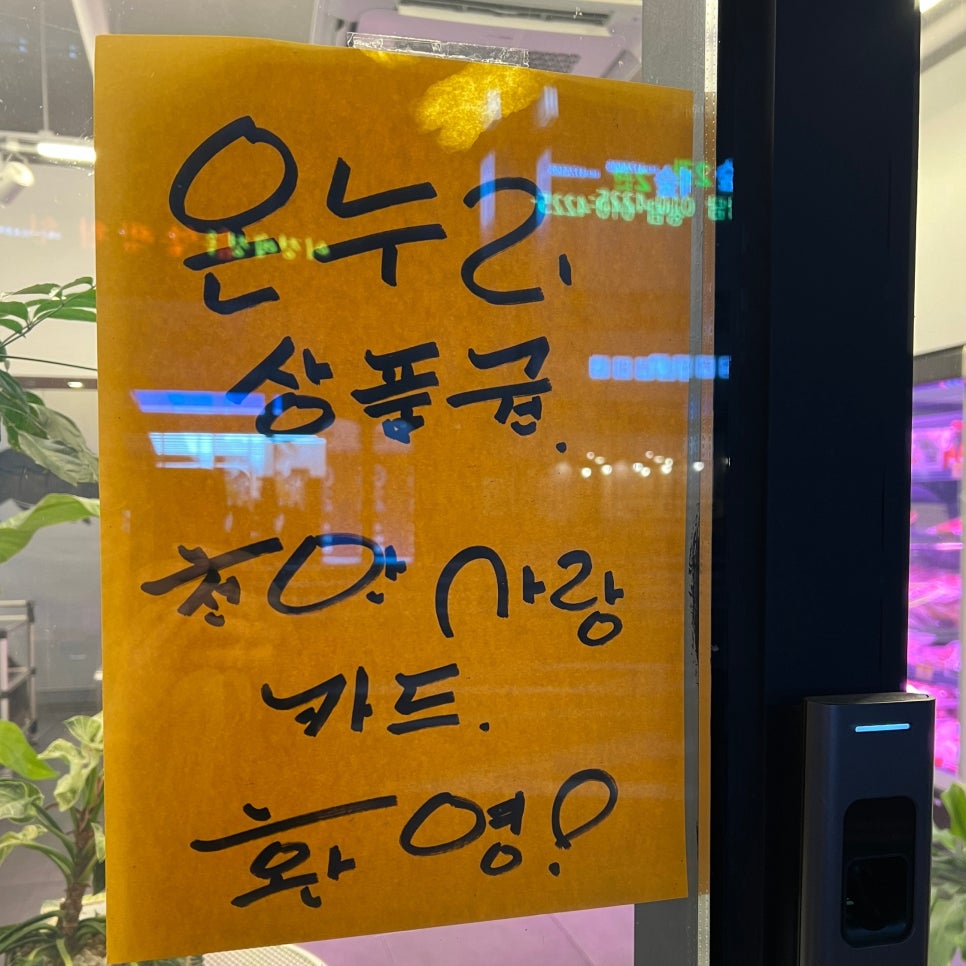 온누리
상품권.
천안 사랑
카드.
환영!